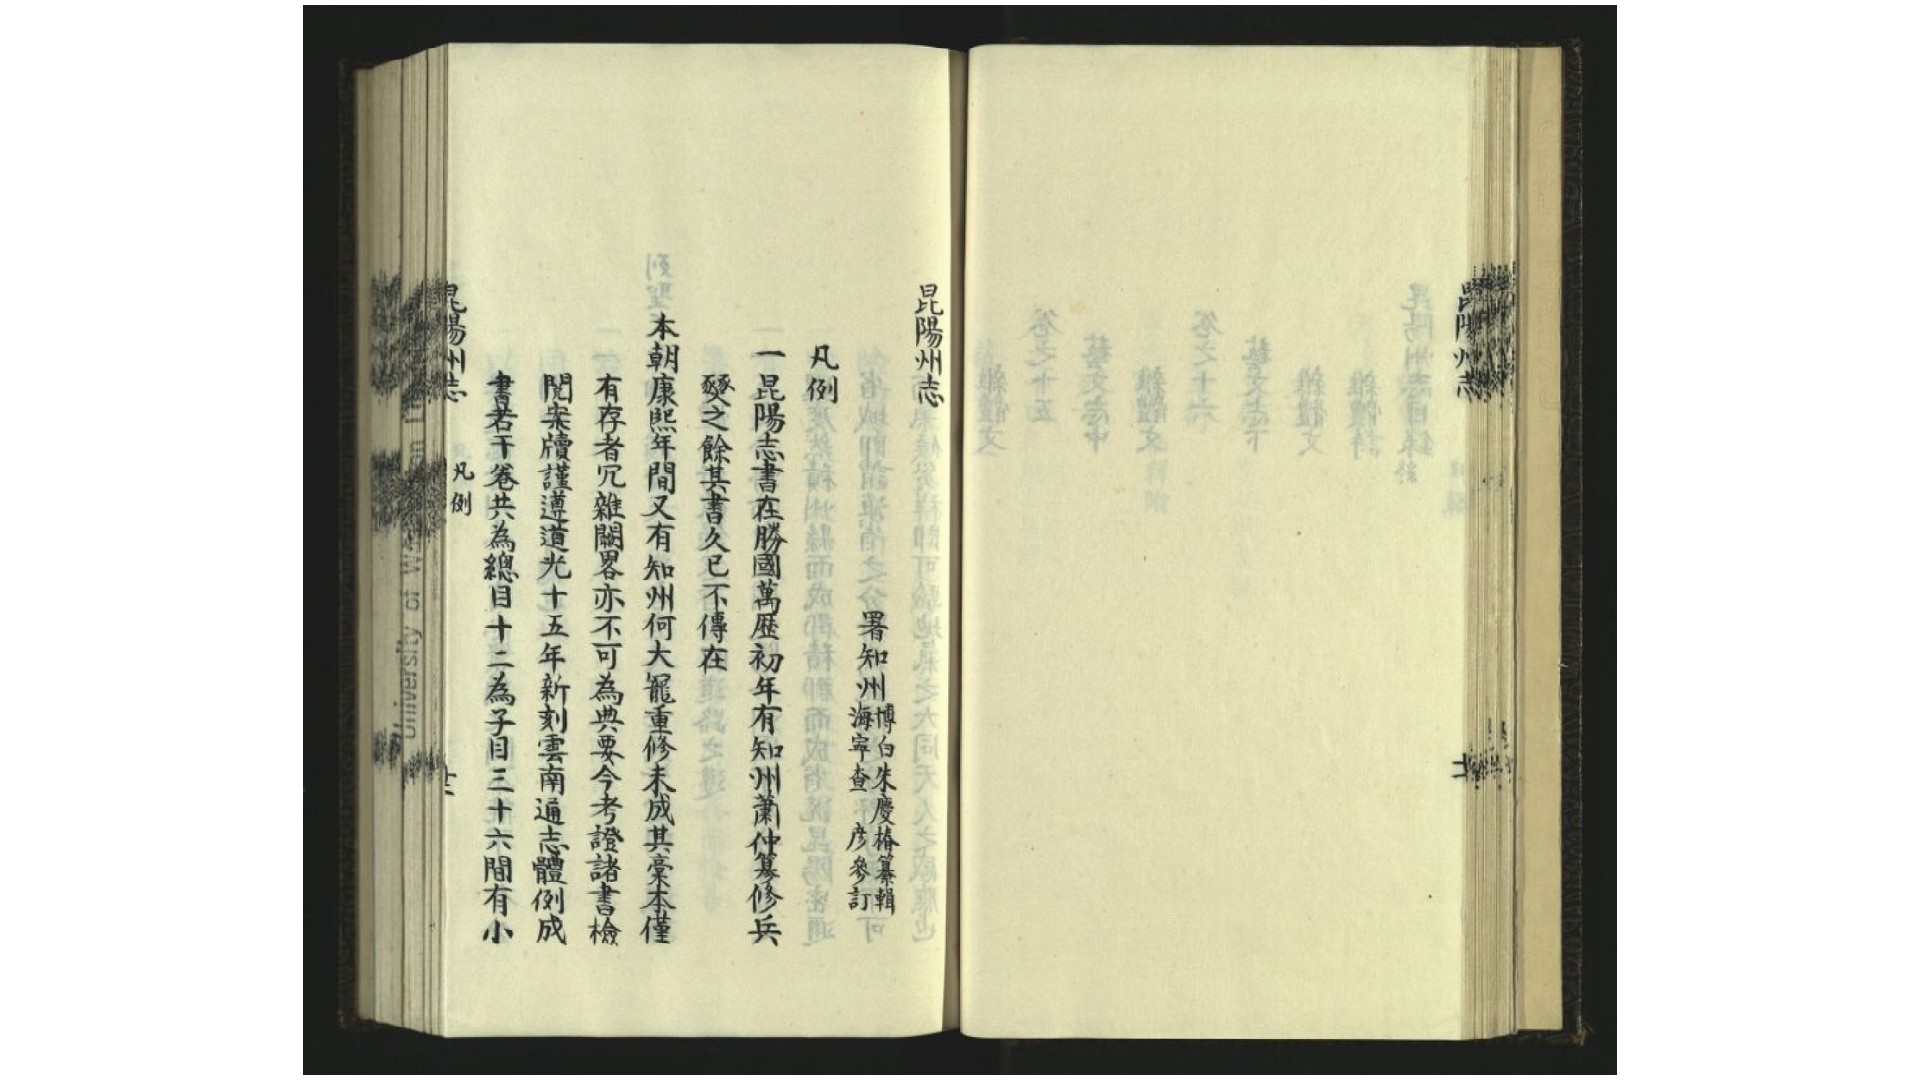 昆陽州志
昆陽州志
署知州博白朱慶椿纂輯
海寧查彦參訂
凡例
一昆陽志書在勝國萬歷初年有知州蕭仲纂修兵
燹之餘其書久已不傳在
本朝康熙年間又有知州何大寵重修未成其稾本僅
有存者冗雜闕畧亦不可為典要今考證諸書檢
閱案牘謹遵道光十五年新刻雲南通志體例成
書若干卷共為總目十二為子目三十六間有小
昆陽州志
凡例